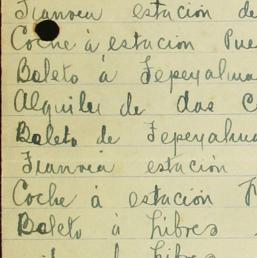 Tranvia estacion de
Coche á estacion Pue
Boleto á Tepeyahua
Alquiler de dos C
Boleto de Tepeyahua
Tranvia estacion
Coche á estación
Boleto á Libres
Libres